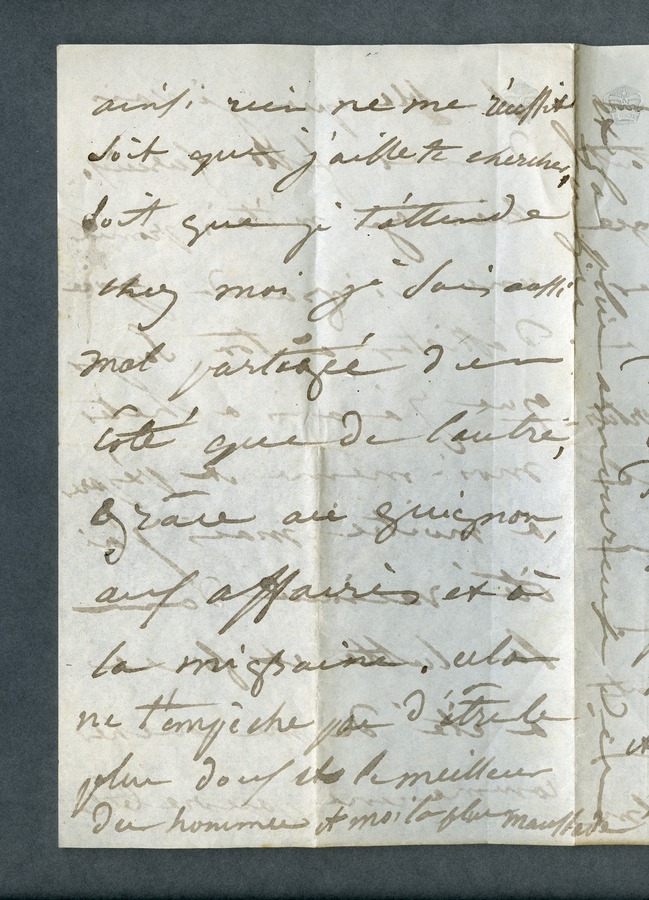 ainsi rien ne me réussit
soit que j'aille te chercher,
soit que je t'attende
chez moi je suis aussi
mal partagée d'un
côté que de l'autre,
Grâce au guignon,
aux affaires et à
la migraine. cela
ne t'empêche pas d'être le
plus doux et le meilleur
des hommes et moi la plus maussade
et la plus